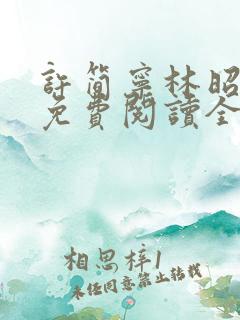 許簡寧林昭
免費閱讀全
相思梓1
未經同意禁止轉載